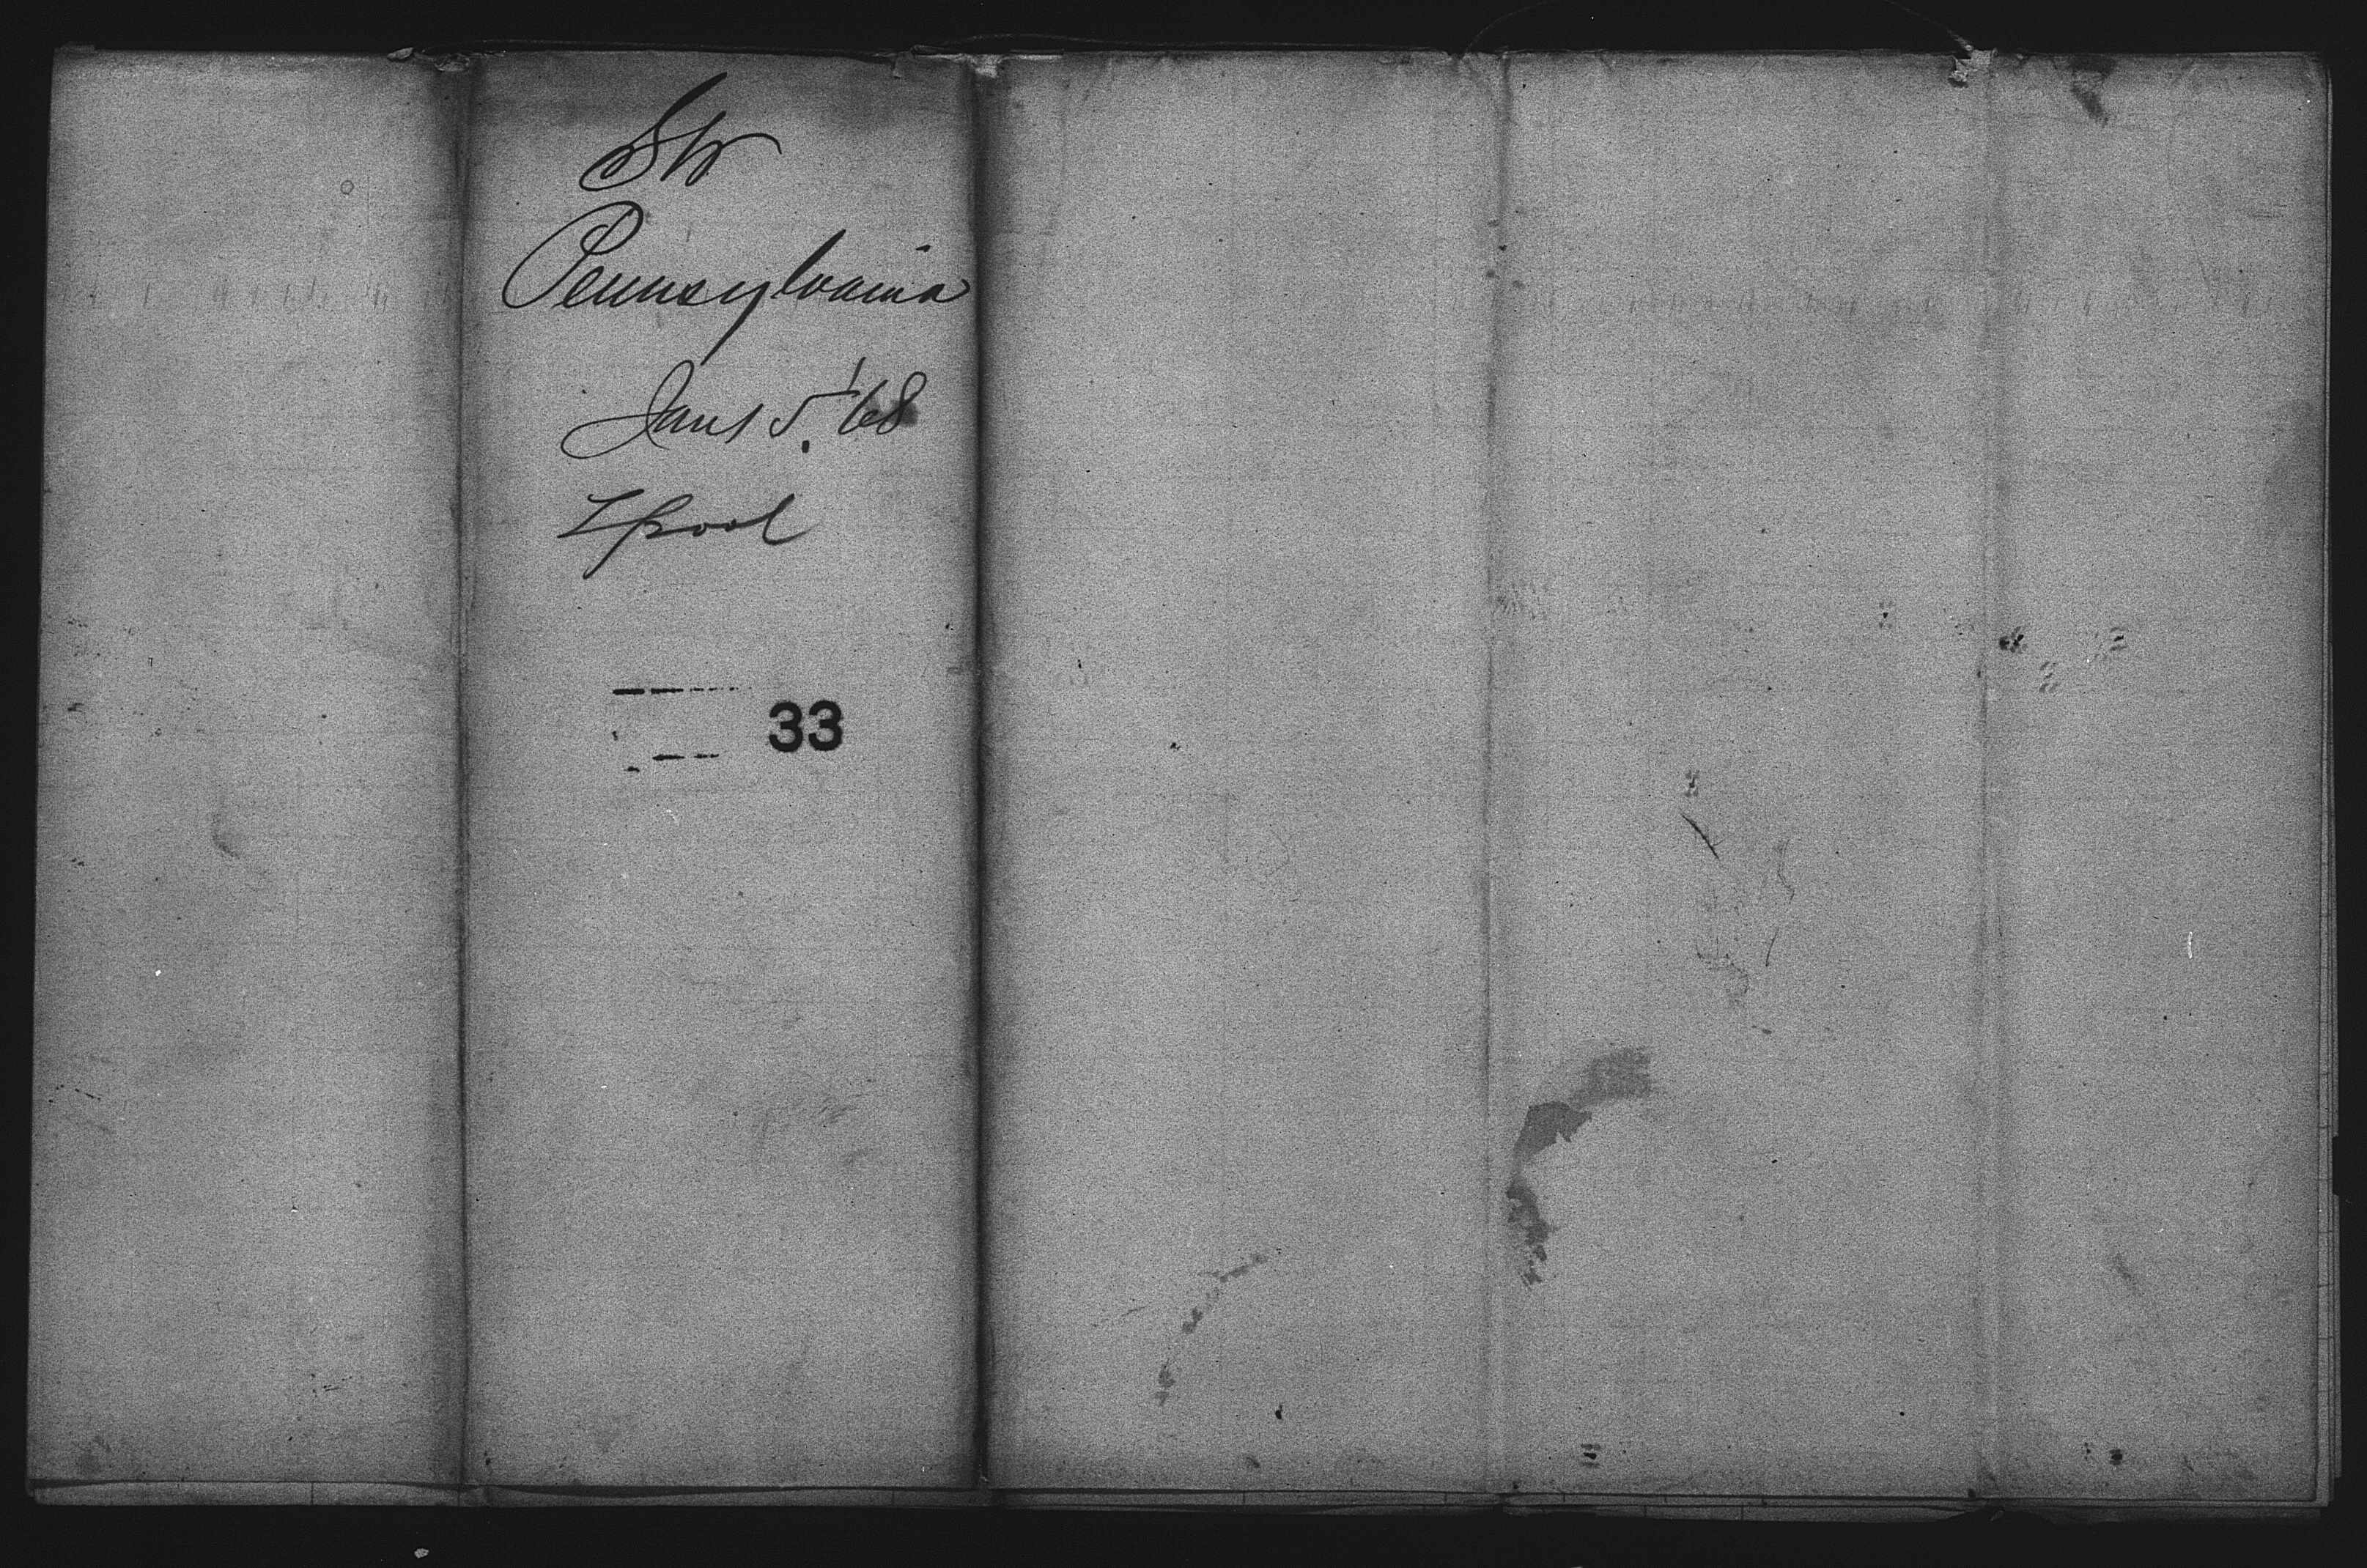 Str
Pennsylvania
Jany 5. '68
Lpool
33